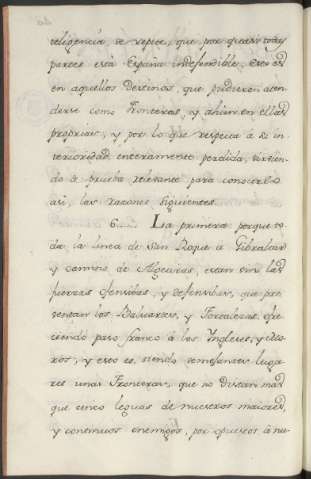 teligencia, se repite, que por quasi todas
partes està España indefendible, esto es
en aquellos Destinos, que pudieran aten
derse como Fronteras, y ahun en ellas
propias, y por lo que respecta à su in
terioridad enteramente perdida, sirvien
do de prueba relevante para conocerlo
asi, las razones siguientes.
6... La primera porque to
da la linea de San Roque à Gibraltar
y camino de Algeciras, estan sin las
fuerzas ofensibas, y defensibas, que pre
sentan los Baluartes, y Fortalezas, ofre
ciendo paso franco à los Yngleses, y
y esto es, siendo semejantes luga
res unas Fronteras, que no distan mas
que cinco leguas de nuestros maiores,
y continuos enemigos, por opuestos à nu-